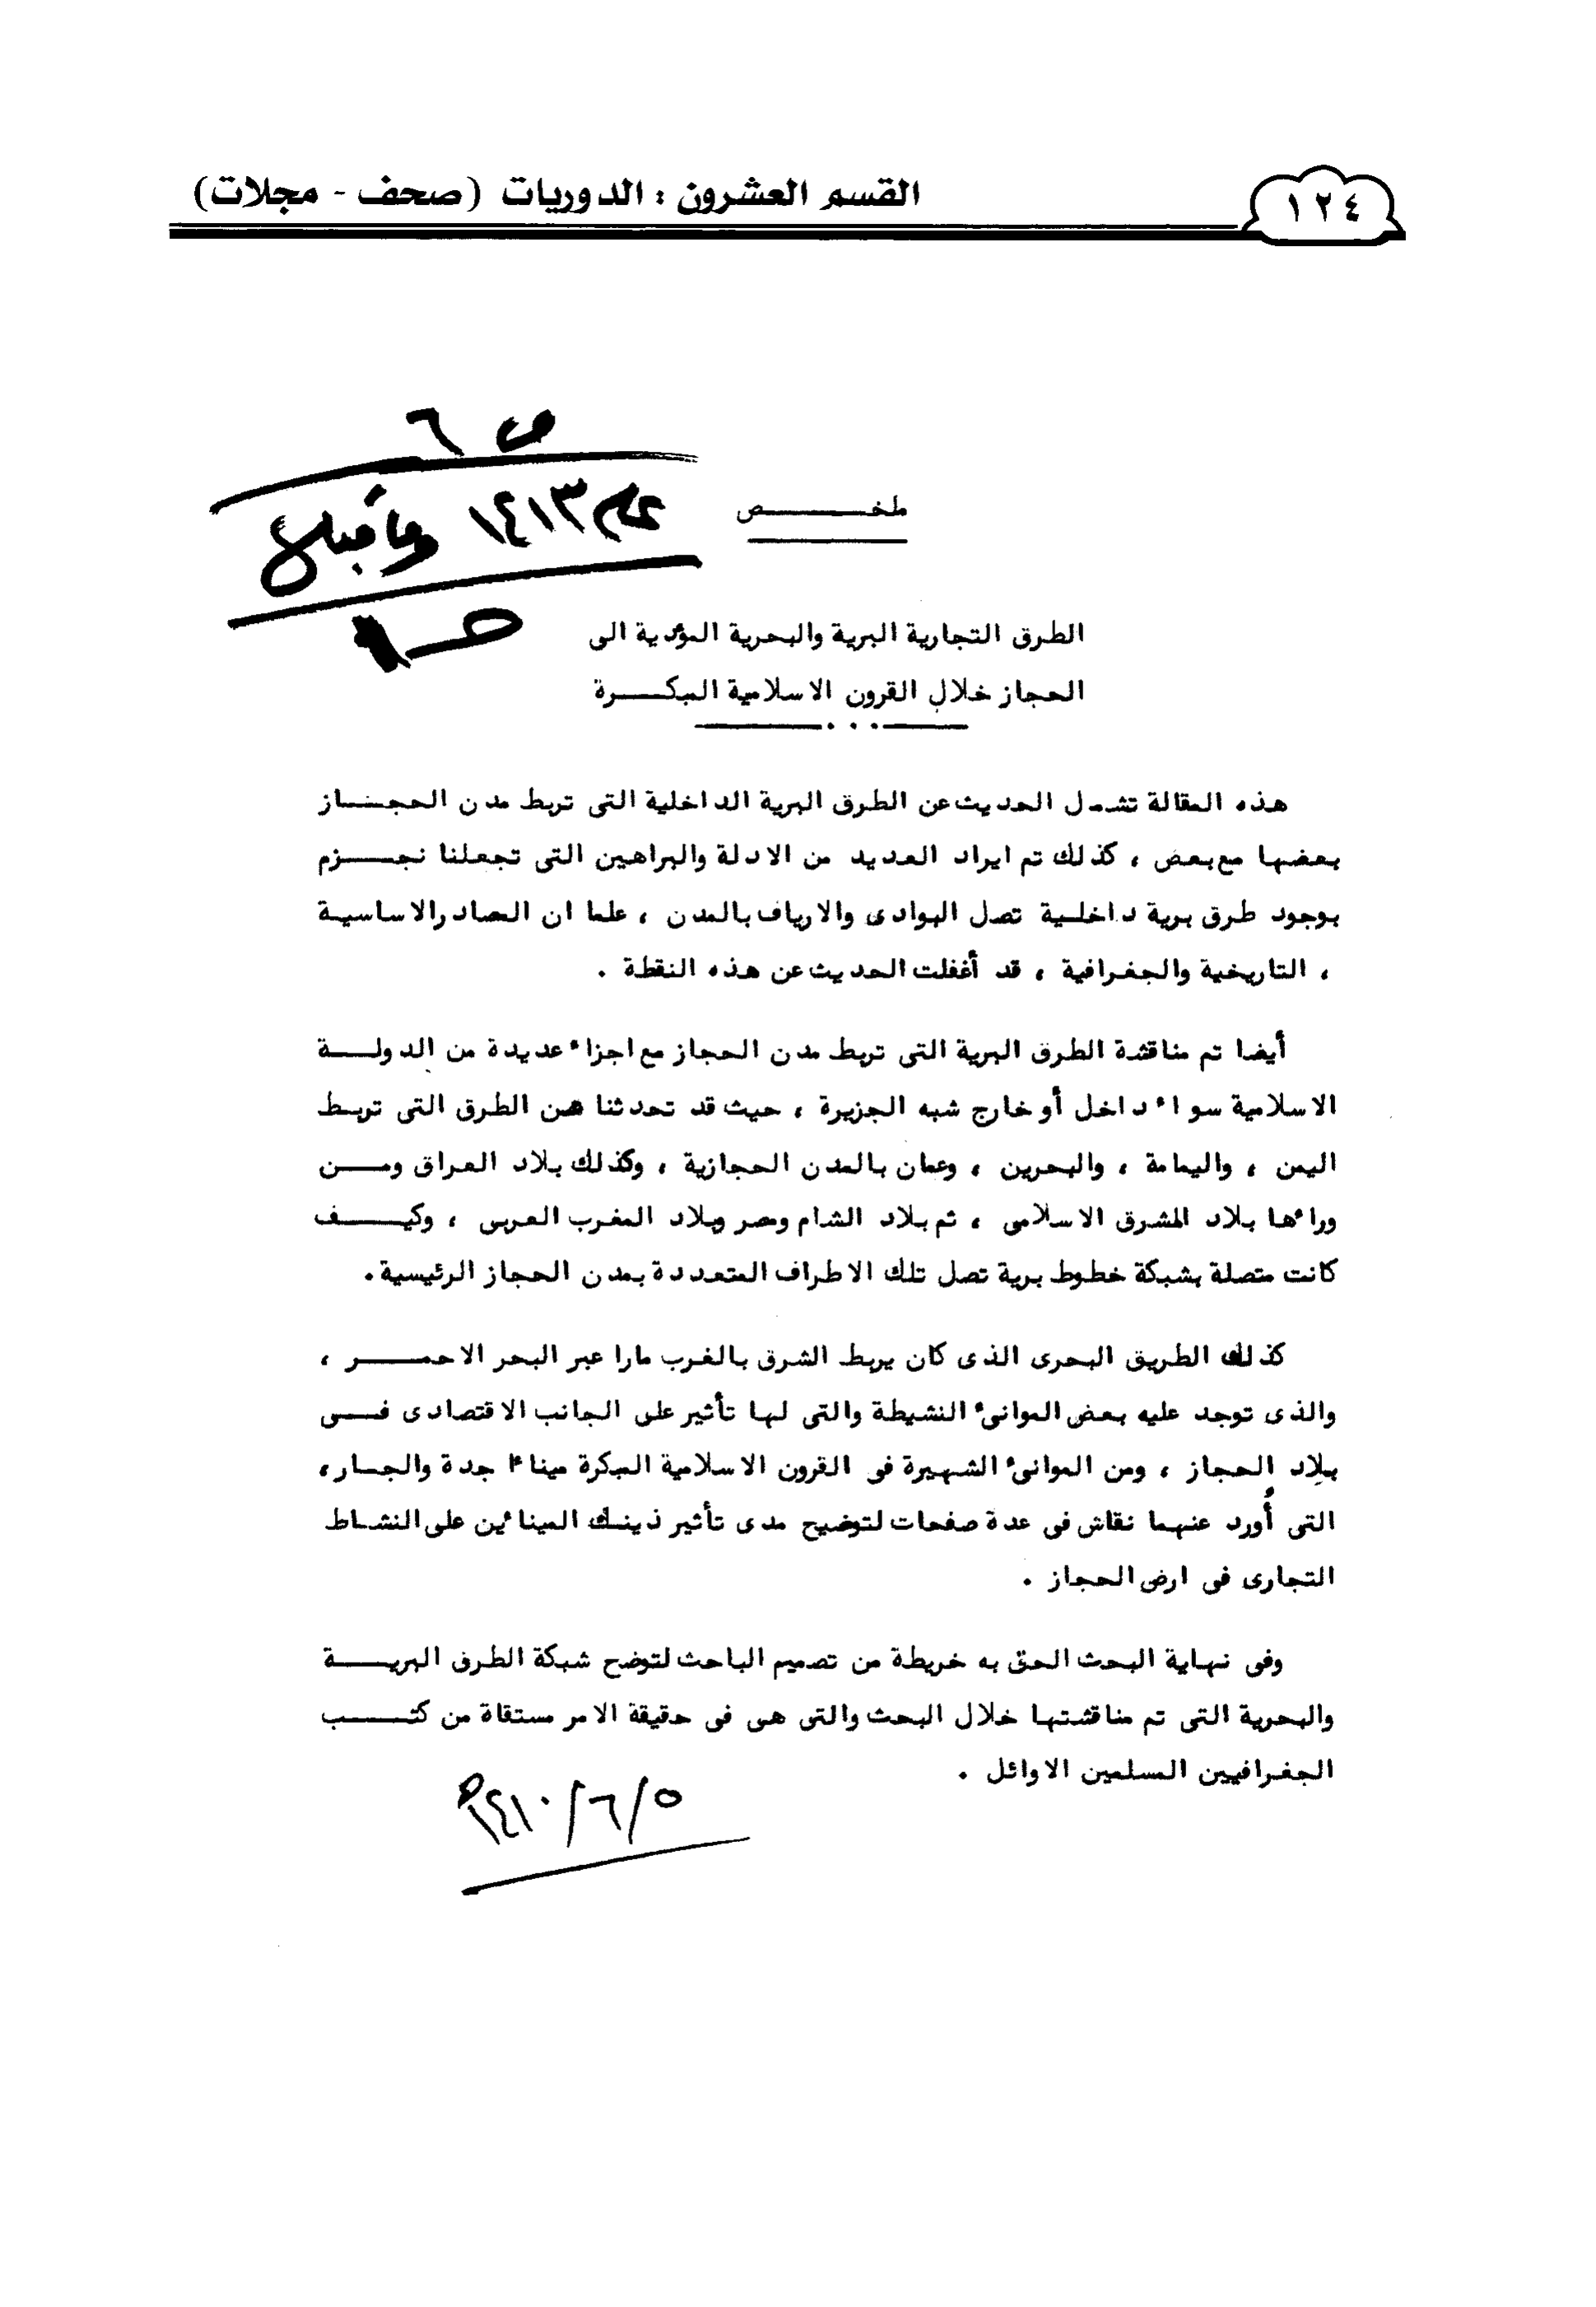 القسم العشرون : الدوريات (صحف - مجلات)
١٢٤
ص ٦
عام ١٤١٣ وما قبله
ملخـــــــص
الطرق التجارية البرية والبحرية المؤدية الى
الحجاز خلال القرون الاسلامية المبكـــرة
هذه المقالة تشمل الحديث عن الطرق البرية الداخلية التى تربط مدن الحجـــاز
بعضها مع بعض ، كذلك تم ايراد العديد من الادلة والبراهين التى تجعلنا نجـــزم
بوجود طرق برية داخلـية تصل البوادى والارياف بالمدن ، علما ان المصادر الاساسيـة
، التاريخية والجغرافية ، قد أغفلت الحديث عن هذه النقطة .
أيضا تم مناقشة الطرق البرية التى تربط مدن الحجاز مع اجزاء عديدة من الدولــة
الاسلامية سواء داخل أو خارج شبه الجزيرة ، حيث قد تحدثنا عن الطرق التى تربـط
اليمن ، واليمامة ، والبحرين ، وعمان بالمدن الحجازية ، وكذلك بلاد العراق ومـــن
وراءها بلاد المشرق الاسلامى ، ثم بلاد الشام ومصر وبلاد المغرب العربى ، وكيــــف
كانت متصلة بشبكة خطوط برية تصل تلك الاطراف المتعددة بمدن الحجاز الرئيسية.
كذلك الطريق البحرى الذى كان يربط الشرق بالغرب مارا عبر البحر الاحمــــر ،
والذى توجد عليه بعض الموانئ النشيطة والتى لها تأثير على الجانب الاقتصادى فـــى
بلاد الحجاز ، ومن الموانئ الشهيرة فى القرون الاسلامية المبكرة ميناءا جدة والجـار،
التى أُورد عنهما نقاش فى عدة صفحات لتوضيح مدى تأثير ذينـك المينائين على النشـاط
التجارى فى ارض الحجاز .
وفى نهاية البحث الحق به خريطة من تصميم الباحث لتوضح شبكة الطرق البريـــة
والبحرية التى تم مناقشتها خلال البحث والتى هى فى حقيقة الامر مستقاة من كتــــب
الجغرافيين المسلمين الاوائل .
٥/٦/١٤١٠هـ